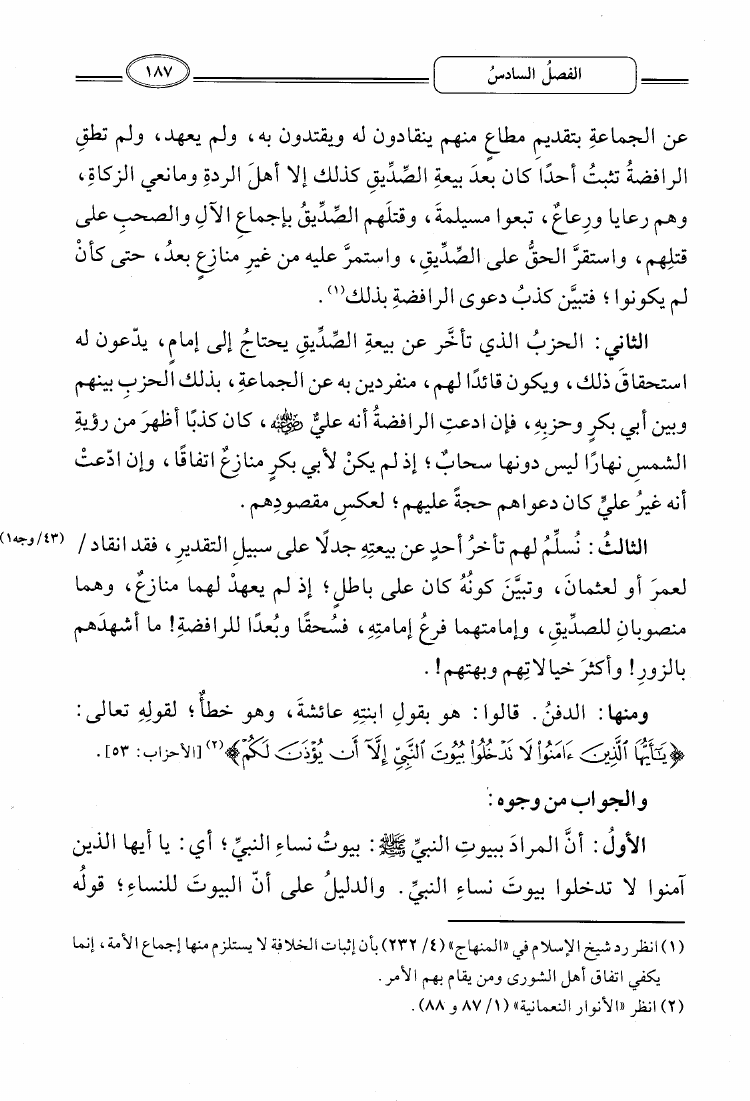 الفصلُ السادسُ
١٨٧
عن الجماعةِ بتقديمِ مطاعٍ منهم ينقادون له ويقتدون به، ولم يعهد، ولم تطقِ
الرافضةُ تثبتُ أحدًا كان بعدَ بيعةِ الصِّدِّيقِ كذلك إلا أهلَ الردةِ ومانعي الزكاةِ،
وهم رعايا ورِعاعٌ، تبعوا مسيلمةَ، وقتلَهم الصِّدِّيقُ بإجماعِ الآلِ والصحبِ على
قتلِهم، واستقرَّ الحقُّ على الصِّدِّيقِ، واستمرَّ عليه من غيرِ منازعٍ بعدُ، حتى كأنْ
لم يكونوا؛ فتبيَّن كذبُ دعوى الرافضةِ بذلك(١).
الثاني: الحزبُ الذي تأخَّر عن بيعةِ الصِّدِّيقِ يحتاجُ إلى إمامٍ، يدّعون له
استحقاقَ ذلك، ويكون قائدًا لهم، منفردين به عن الجماعةِ، بذلك الحزبِ بينهم
وبين أبي بكرٍ وحزبِهِ، فإن ادعتِ الرافضةُ أنه عليٌّ رضي الله عنه، كان كذبًا أظهرَ من رؤيةِ
الشمسِ نهارًا ليس دونها سحابٌ؛ إذ لم يكنْ لأبي بكرٍ منازعٌ اتفاقًا، وإن ادّعتْ
أنه غيرُ عليٍّ كان دعواهم حجةً عليهم؛ لعكسِ مقصودِهم.
الثالثُ: نُسلِّمُ لهم تأخرُ أحدٍ عن بيعتِهِ جدلًا على سبيلِ التقديرِ، فقد انقاد/ (٤٣/وجه١)
لعمرَ أو لعثمانَ، وتبيَّن كونُهُ كان على باطلٍ؛ إذ لم يعهدْ لهما منازعٌ، وهما
منصوبانِ للصدِّيقِ، وإمامتهما فرعُ إمامتِهِ، فسُحقًا وبُعدًا للرافضةِ! ما أشهدَهم
بالزورِ! وأكثرَ خيالاتِهم وبهتهم!.
ومنها: الدفنُ. قالوا: هو بقولِ ابنتِهِ عائشةَ، وهو خطأٌ؛ لقولِهِ تعالى:
﴿يَٰٓأَيُّهَا ٱلَّذِينَ ءَامَنُوا۟ لَا تَدْخُلُوا۟ بُيُوتَ ٱلنَّبِىِّ إِلَّآ أَن يُؤْذَنَ لَكُمْ﴾(٢) [الأحزاب: ٥٣].
والجواب من وجوه:
الأولُ: أنَّ المرادَ ببيوتِ النبيِّ ﷺ: بيوتُ نساءِ النبيِّ؛ أي: يا أيها الذين
آمنوا لا تدخلوا بيوتَ نساءِ النبيِّ. والدليلُ على أنّ البيوتَ للنساءِ؛ قولُه
(١) انظر رد شيخ الإسلام في «المنهاج» (٤/ ٢٣٢) بأن إثبات الخلافة لا يستلزم منها إجماع الأمة، إنما
يكفي اتفاق أهل الشورى ومن يقام بهم الأمر.
(٢) انظر «الأنوار النعمانية» (١/ ٨٧ و ٨٨).